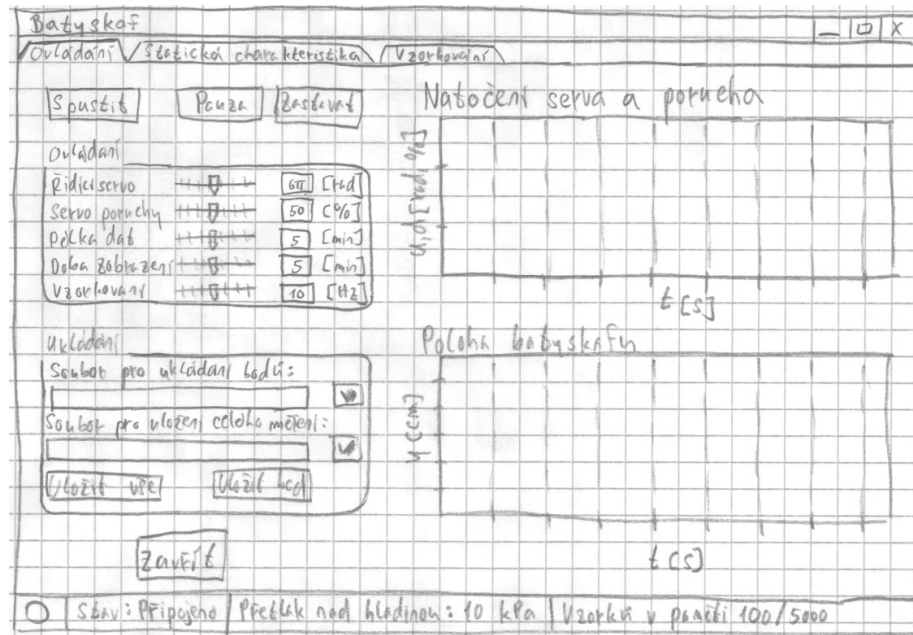 Batyskaf
X
Ovládání Statická charakteristika Vzorkování
Spustit Pauza Zastavat
Ovládání
Řídící servo 6π [rad]
Servo poruchy 50 [%]
Délka dat 5 [min]
Doba zobrazení 5 [min]
Vzorkování 10 [Hz]
Ukládání
Soubor pro ukládání bodů:
Soubor pro uložení celého měření:
Uložit vše Uložit bod
Zavřít
Natočení serva a porucha
u,d [rad, %]
t [s]
Poloha batyskafu
y [cm]
t [s]
Stav: Připojeno Přetlak nad hladinou: 10 kPa Vzorků v paměti 100/5000